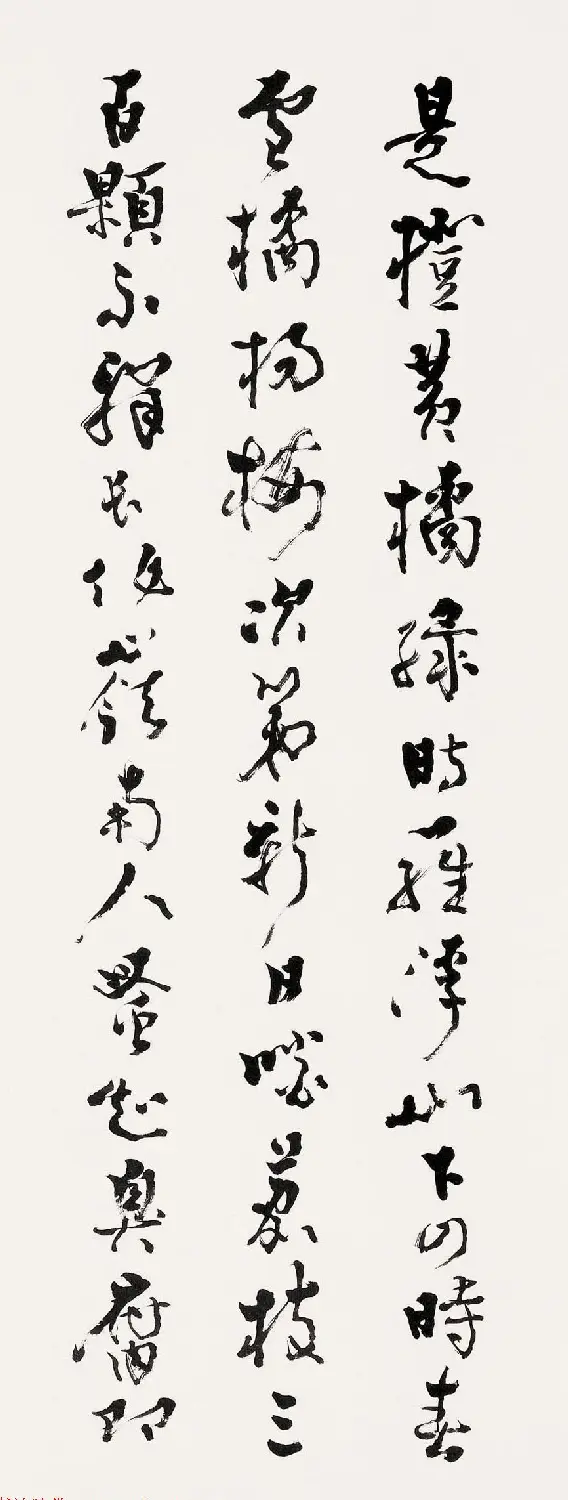 是橙黄橘綠時羅浮山下四時春
盧橘楊梅次第新日啖荔枝三
百顆不辭長作嶺南人蚤起臭腐即